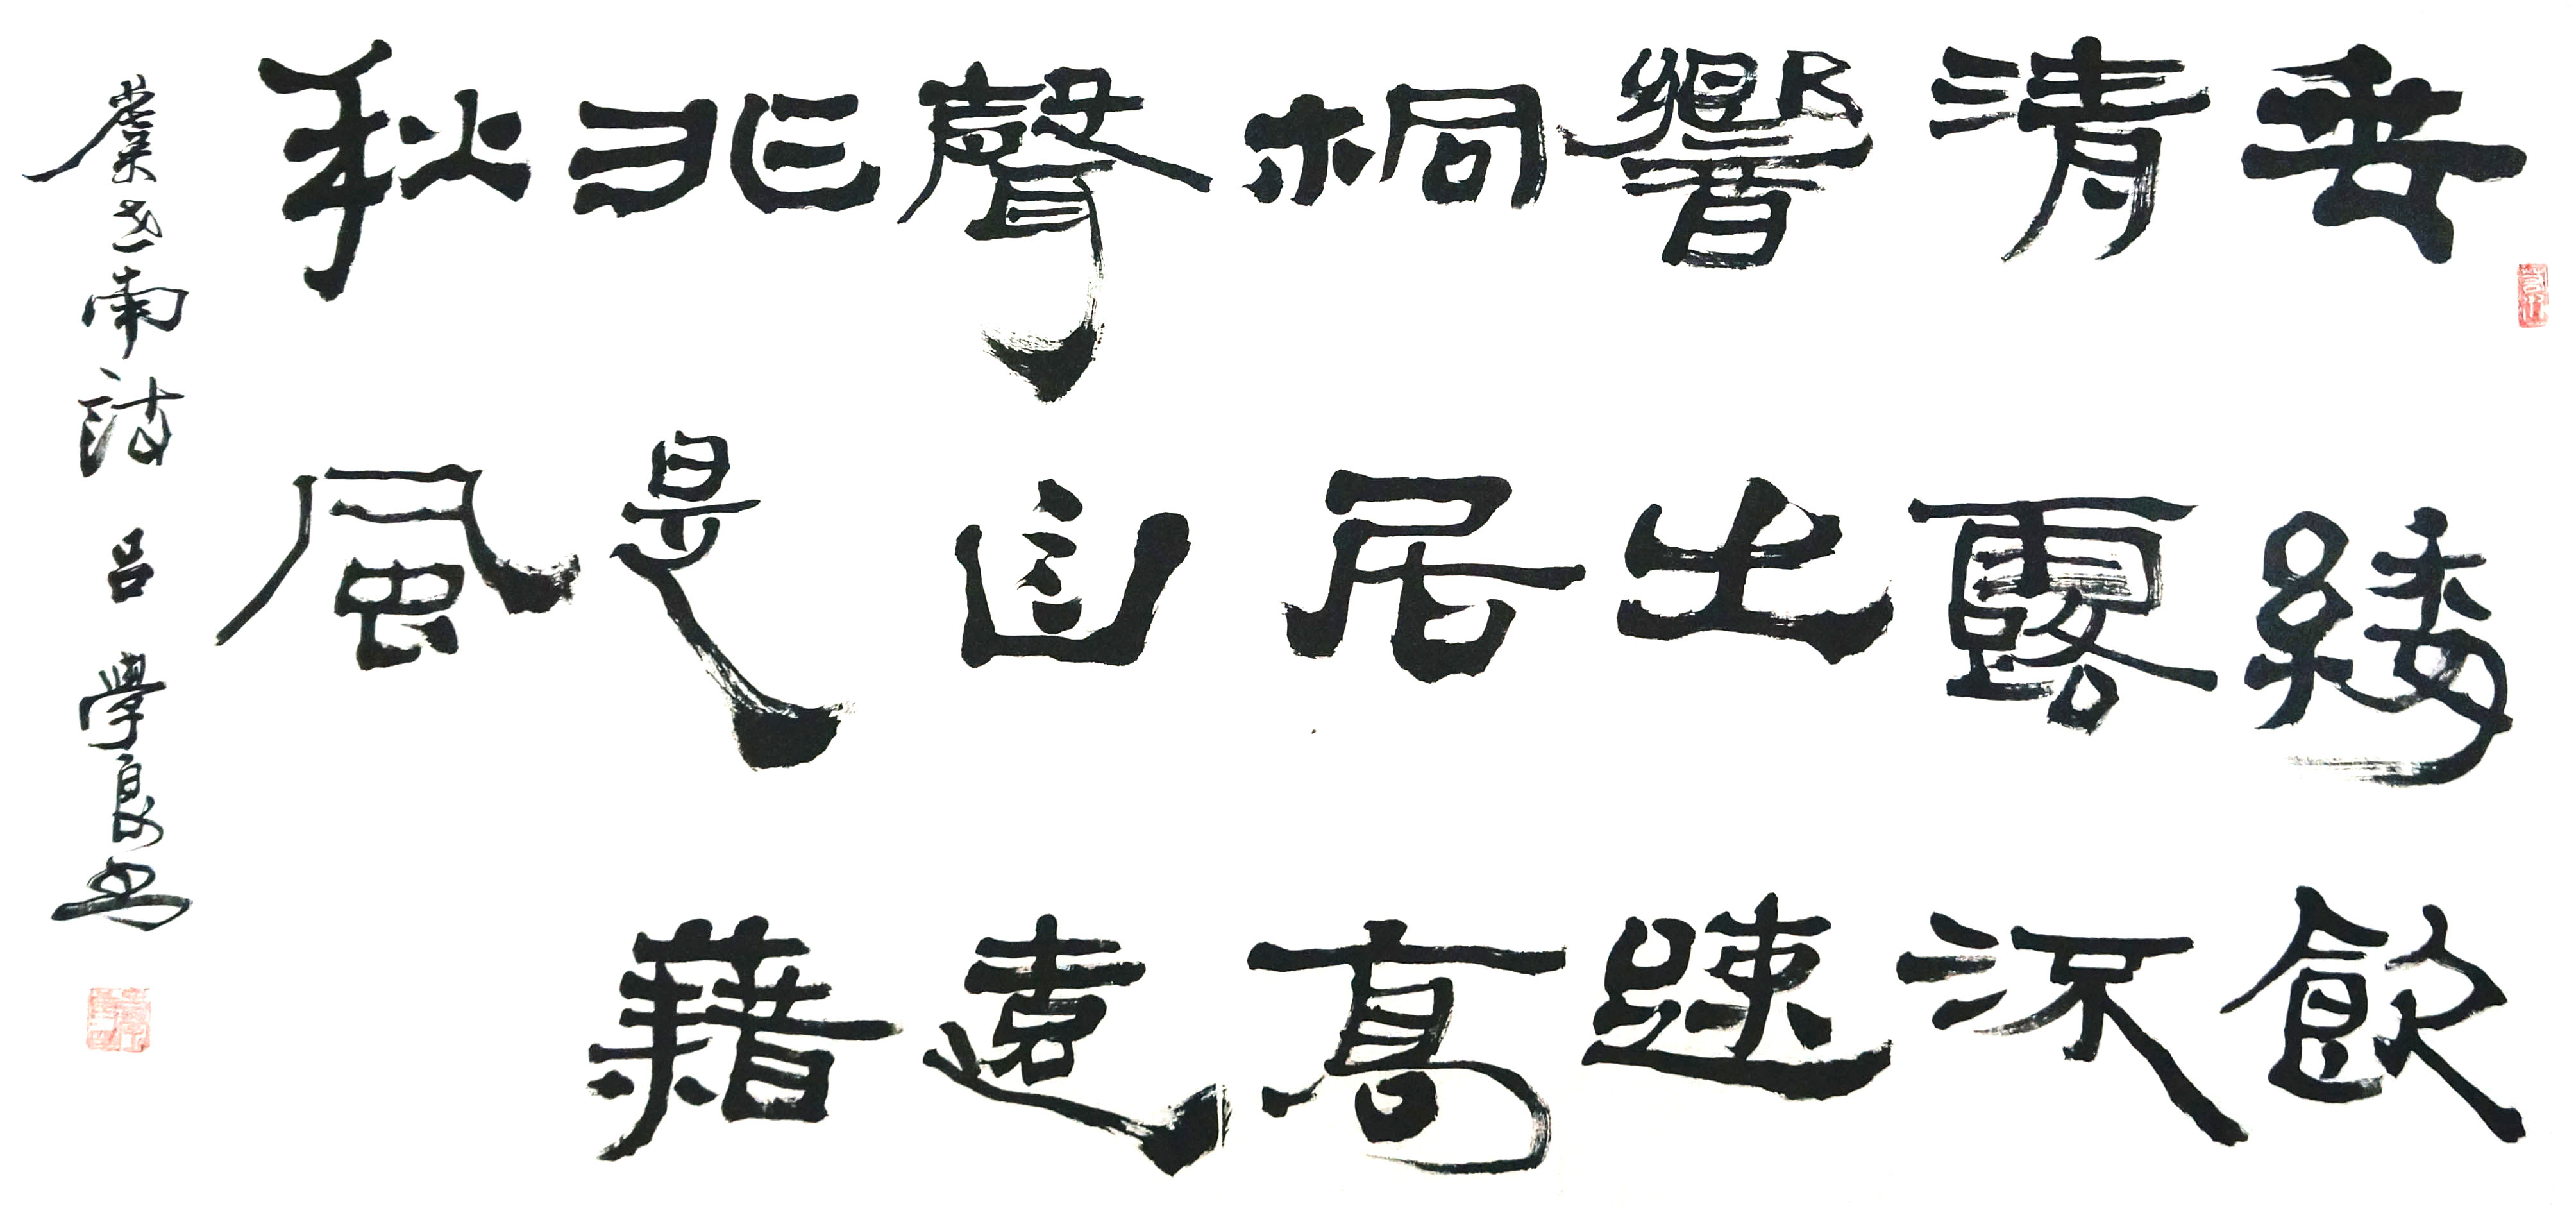 垂緌飲
清露流
響出踈
桐居高
聲自遠
非是藉
秋風
虞世南詩 呂學良書